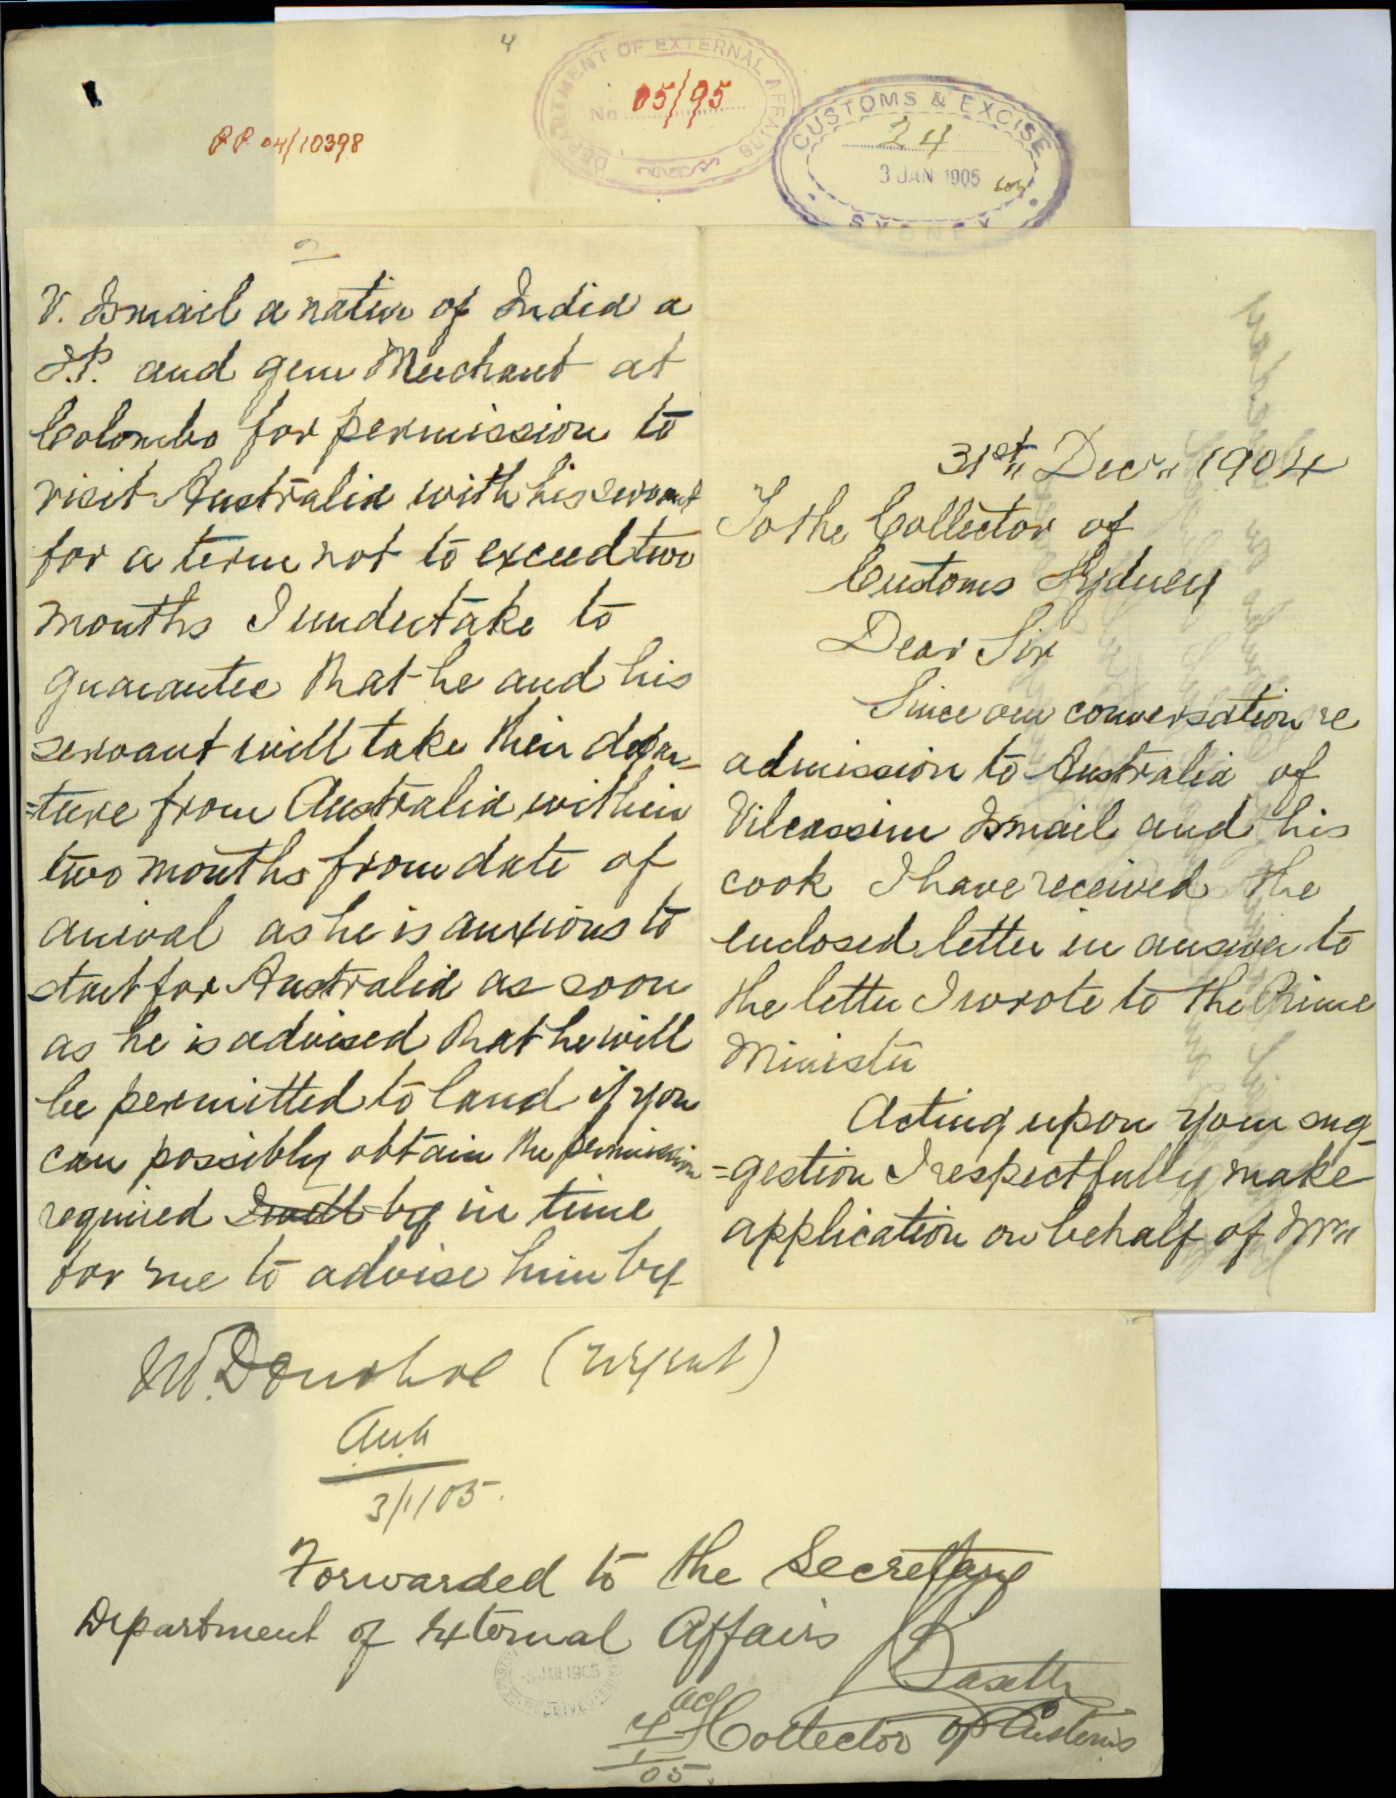 4
DEPARTMENT OF EXTERNAL AFFAIRS
No 05/95
PP 04/10398
CUSTOMS & EXCISE
24
3 JAN 1905
SYDNEY
31st Decr 1904
To the Collector of
Customs Sydney
Dear Sir
Since our conversation re
admission to Australia of
Vilcassim Ismail and his
cook I have received the
enclosed letter in answer to
the letter I wrote to the Prime
Minister
Acting upon your sug
=gestion I respectfully make
application on behalf of Mr
2
V. Ismail a native of India a
J.P. and gem Merchant at
Colombo for permission to
visit Australia with his servant
for a term not to exceed two
months I undertake to
guarantee that he and his
servant will take their depar
=ture from Australia within
two months from date of
arrival as he is anxious to
start for Australia as soon
as he is advised that he will
be permitted to land if you
can possibly obtain the permission
required I will by in time
for me to advise him by
Mr. Donohoe (urgent)
3/1/05.
Forwarded to the Secretary
Department of External Affairs
Actg Collector of Customs
4/1/05.